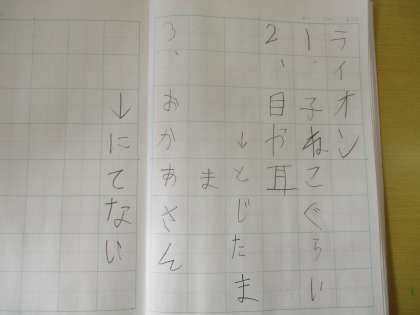 ライオン
1、子ねこぐらい
2、目や耳
↓とじたま
ま
3、おかあさん
↓にてない